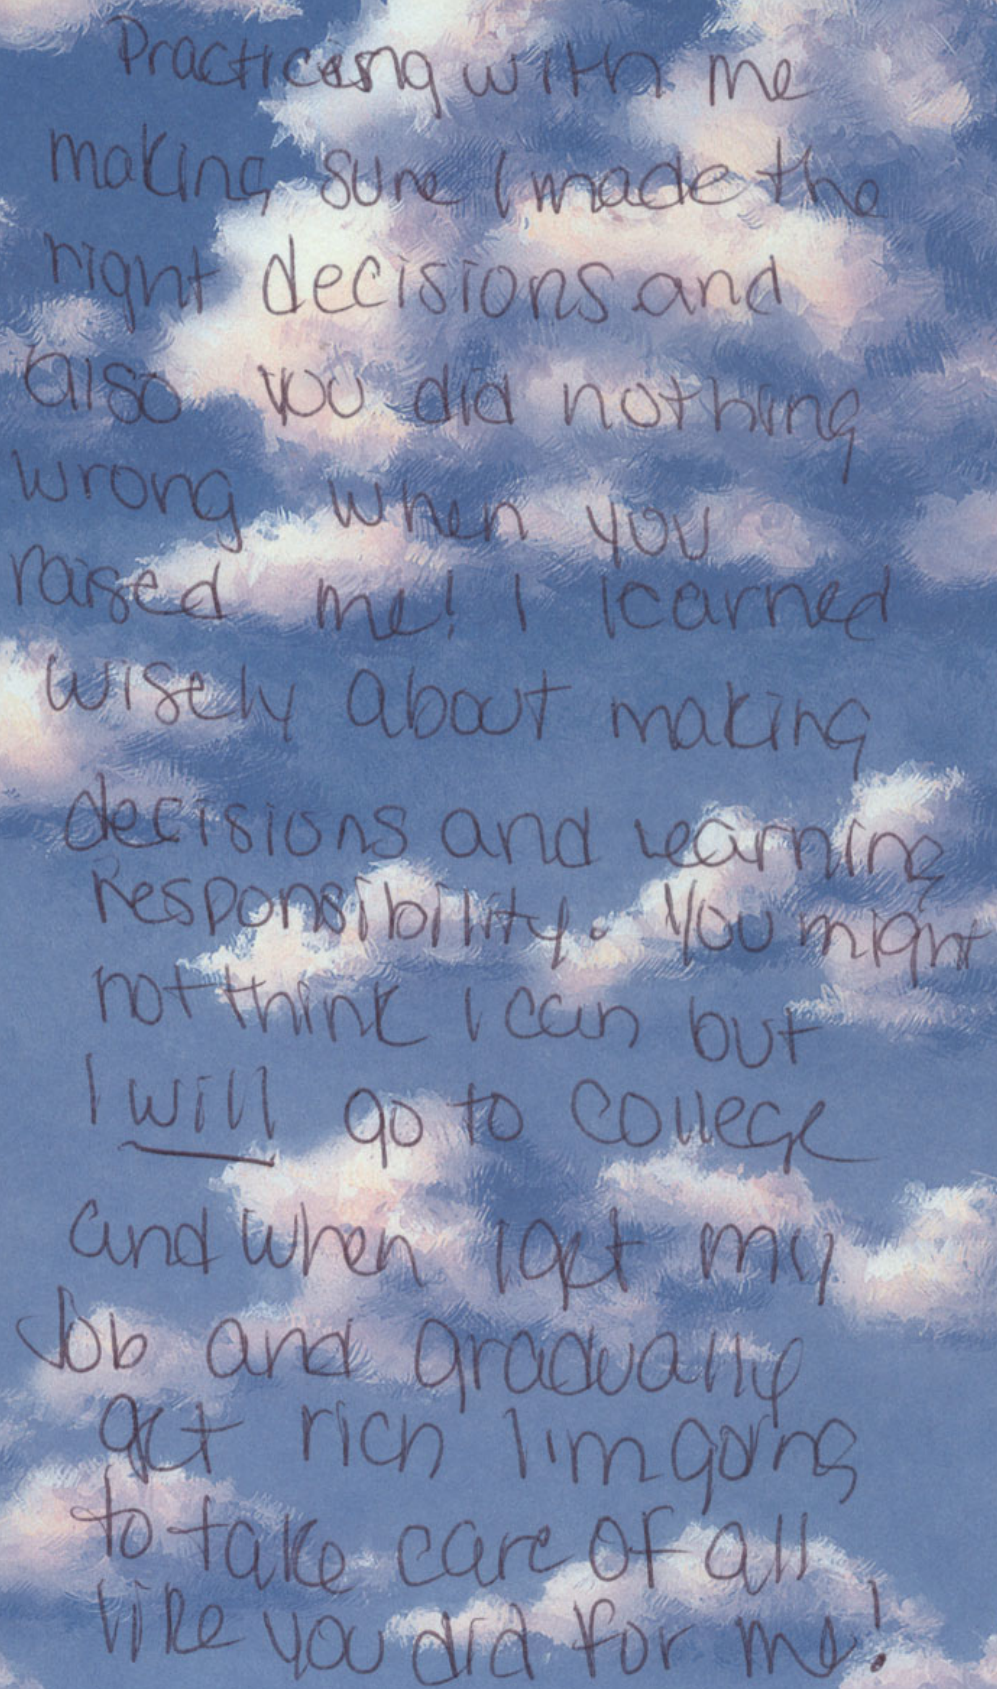 Practicing with me
making sure I made the
right decisions and
also you did nothing
wrong when you
raised me! I learned
wisely about making
decisions and learning
Responsibility. You might
not think I can but
I will go to college
and when I get my
Job and gradually
get rich I'm going
to take care of all
like you did for me!